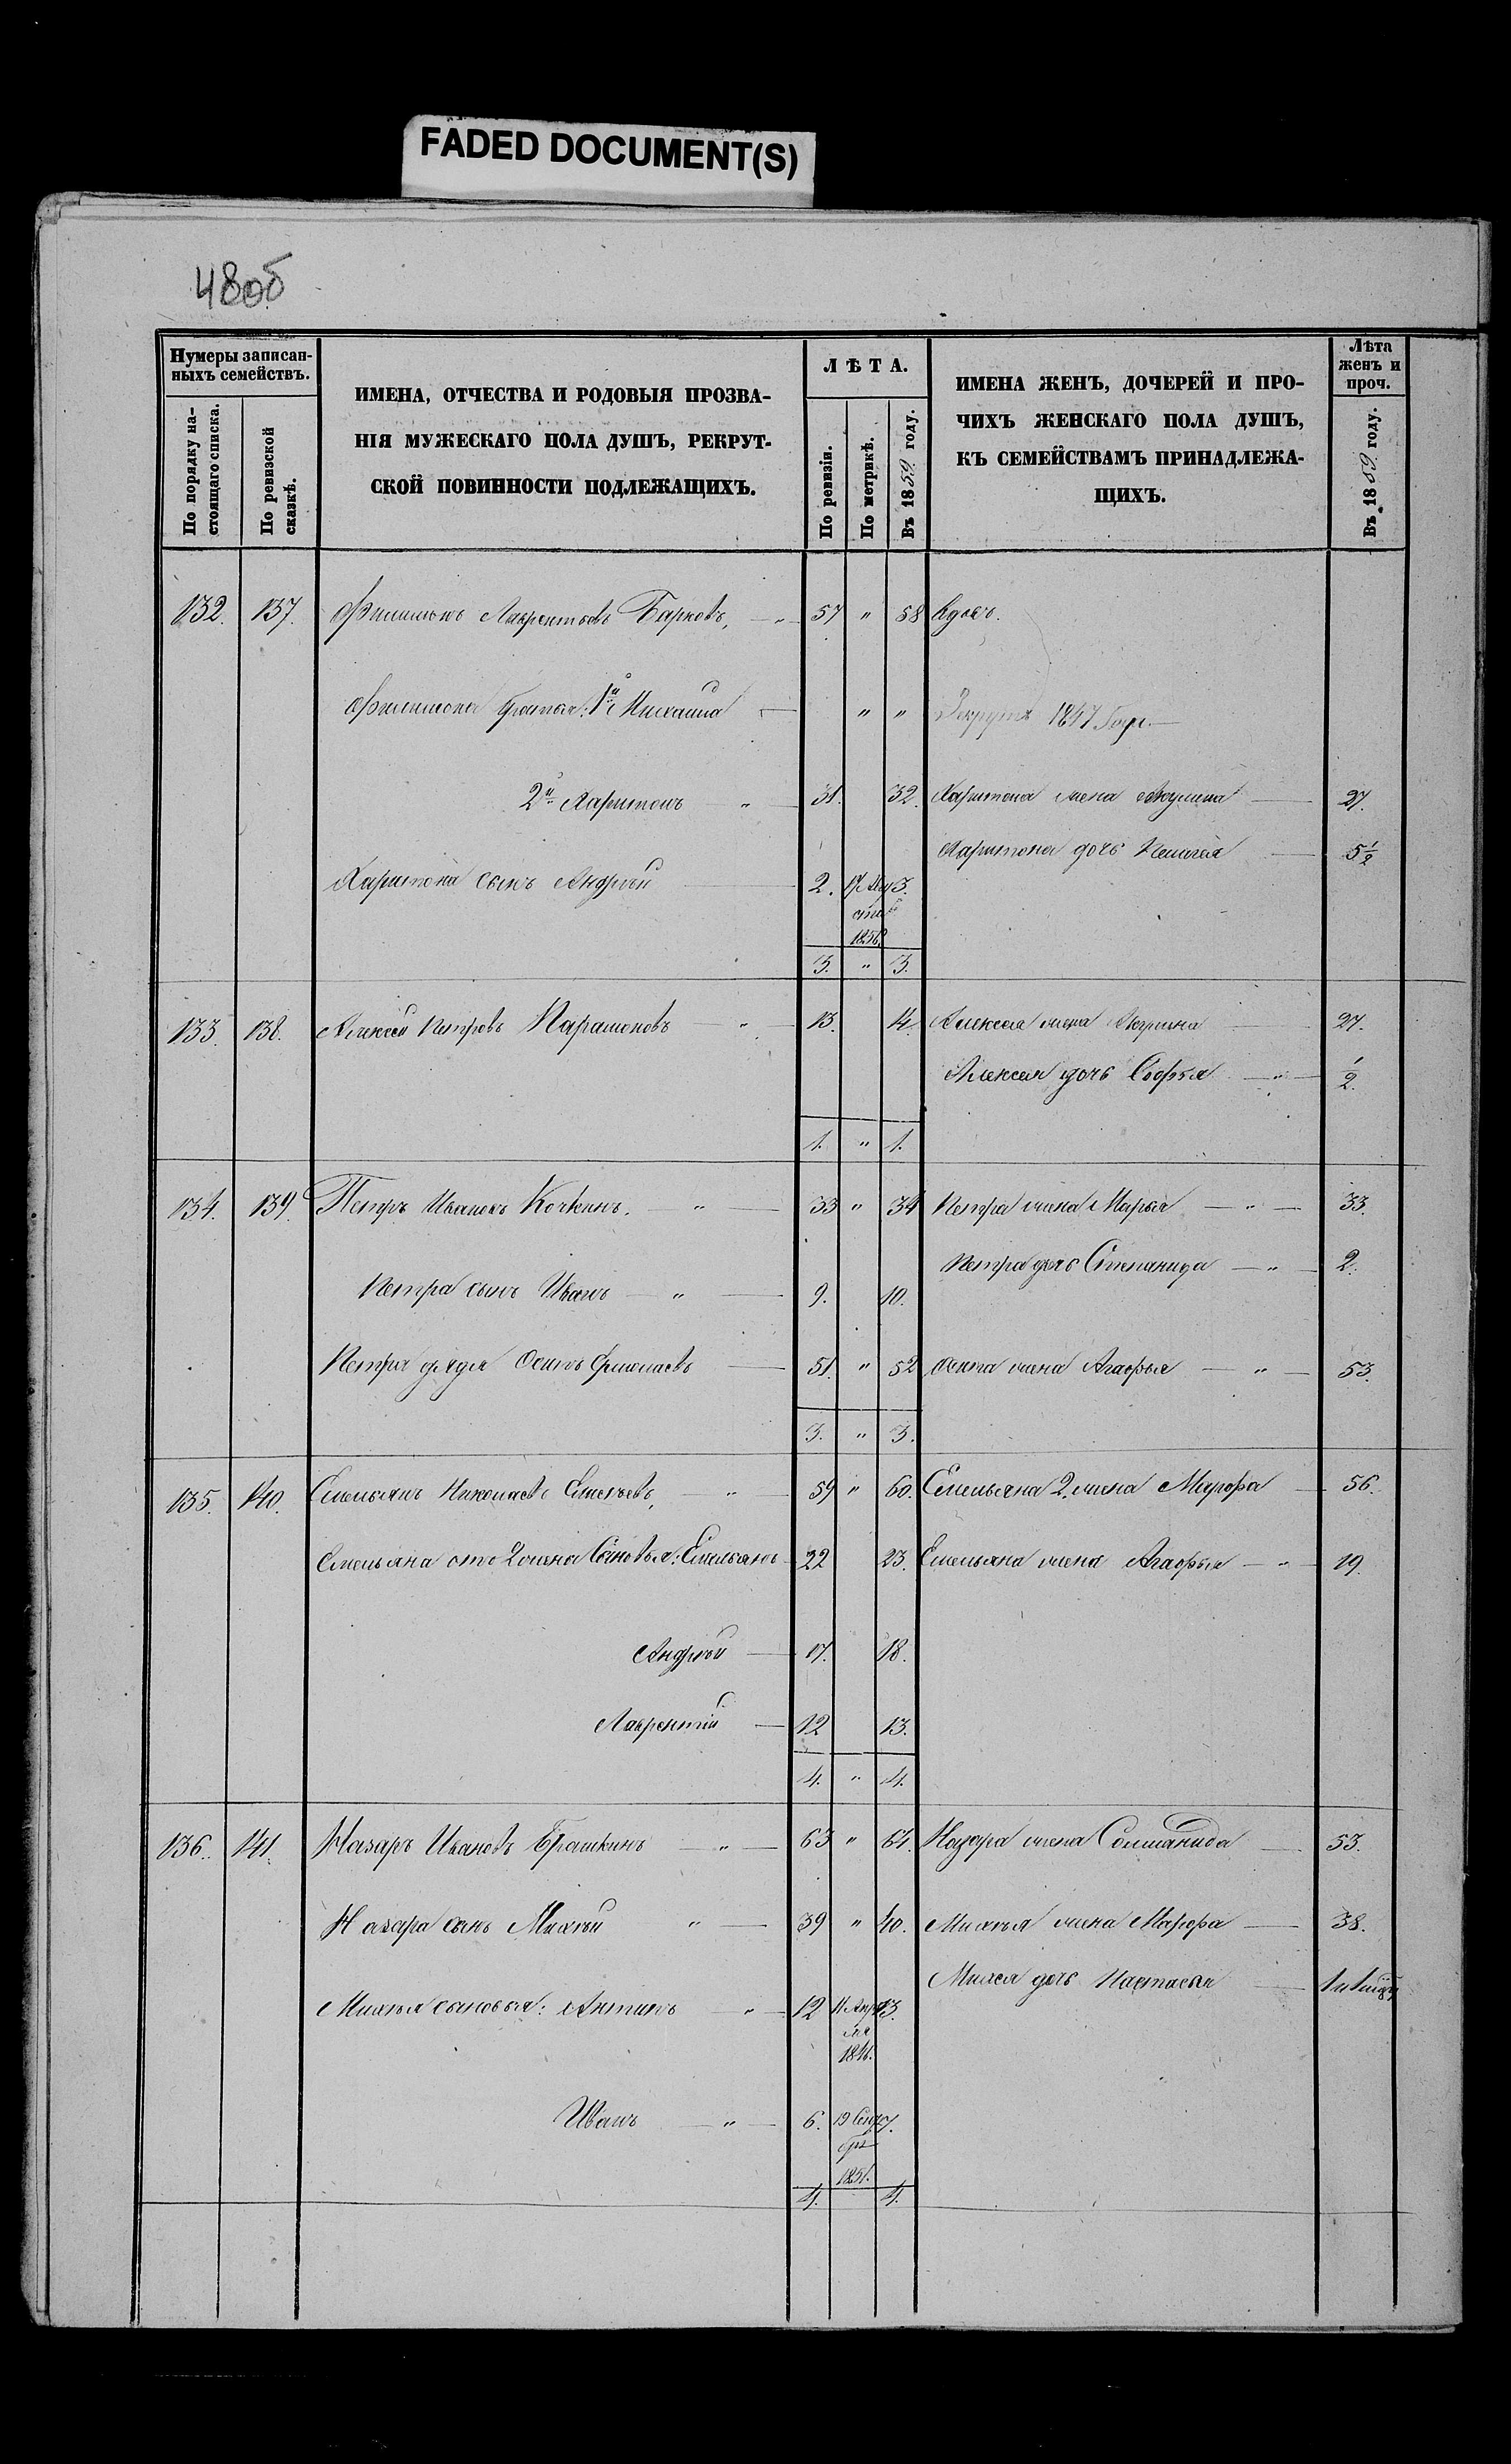 FADED DOCUMENT(S)
48об
Нумеры записан-
ныхъ семействъ.
По порядку на-
стоящаго списка.
По ревизской
сказкѣ.
ИМЕНА, ОТЧЕСТВА И РОДОВЫЯ ПРОЗВА-
НІЯ МУЖЕСКАГО ПОЛА ДУШЪ, РЕКРУТ-
СКОЙ ПОВИННОСТИ ПОДЛЕЖАЩИХЪ.
ЛѢТА.
По ревизіи.
По метрикѣ.
Въ 1859 году.
ИМЕНА ЖЕНЪ, ДОЧЕРЕЙ И ПРО-
ЧИХЪ ЖЕНСКАГО ПОЛА ДУШЪ,
КЪ СЕМЕЙСТВАМЪ ПРИНАДЛЕЖА-
ЩИХЪ.
Лѣта
женъ и
проч.
Въ 1859 году.
132. 137. Филимонъ Лаврентьевъ Барковъ, — " 57 " 58 Вдовъ.
Филимона братья: 1й Михаила — " " Рекрутъ 1847 года.—
2й Харитонъ " — 31. 32. Харитона жена Акулина — 27.
Харитона дочь Пелагея — 5 1/2
Харитона сынъ Андрей — 2. 17 Авгу 3.
ста
1856.
3. " 3.
133. 138. Алексей Петровъ Парамоновъ — " — 13. 14. Алексея жена — 27.
Алексея дочь Софья — " — 1/2.
1. " 1.
134. 139. Петръ Ивановъ Кочкинъ. " — 33 " 34 Петра жена Марья — " — 33.
Петра дочь Степанида — " — 2.
Петра сынъ Иванъ — " — 9. 10.
Петра дядя Осипъ — 51. " 52 Осипа жена Агафья — " — 53.
3. " 3.
135. 140. Емельянъ Николаевъ — " — 59 " 60. Емельяна 2. жена Марфа — 56.
Емельяна отъ 2 жены Сыновья: Емельянъ 22 23. Емельяна жена Агафья — " — 19.
Андрей — 17. 18.
Лаврентій — 12 13.
4. " 4.
136. 141. Назаръ Ивановъ Брашкинъ — " — 63 " 64. Назара жена Соломанида — 53.
Назара сынъ Михей " — 39 " 40. Михея жена Марфа — 38.
Михея дочь Настасья —
Михея сыновья: Антипъ — " — 12 11 Апре 13.
ля
1846.
Иванъ — " — 6. 19 Сентя 7.
бря
1851.
4. 4.